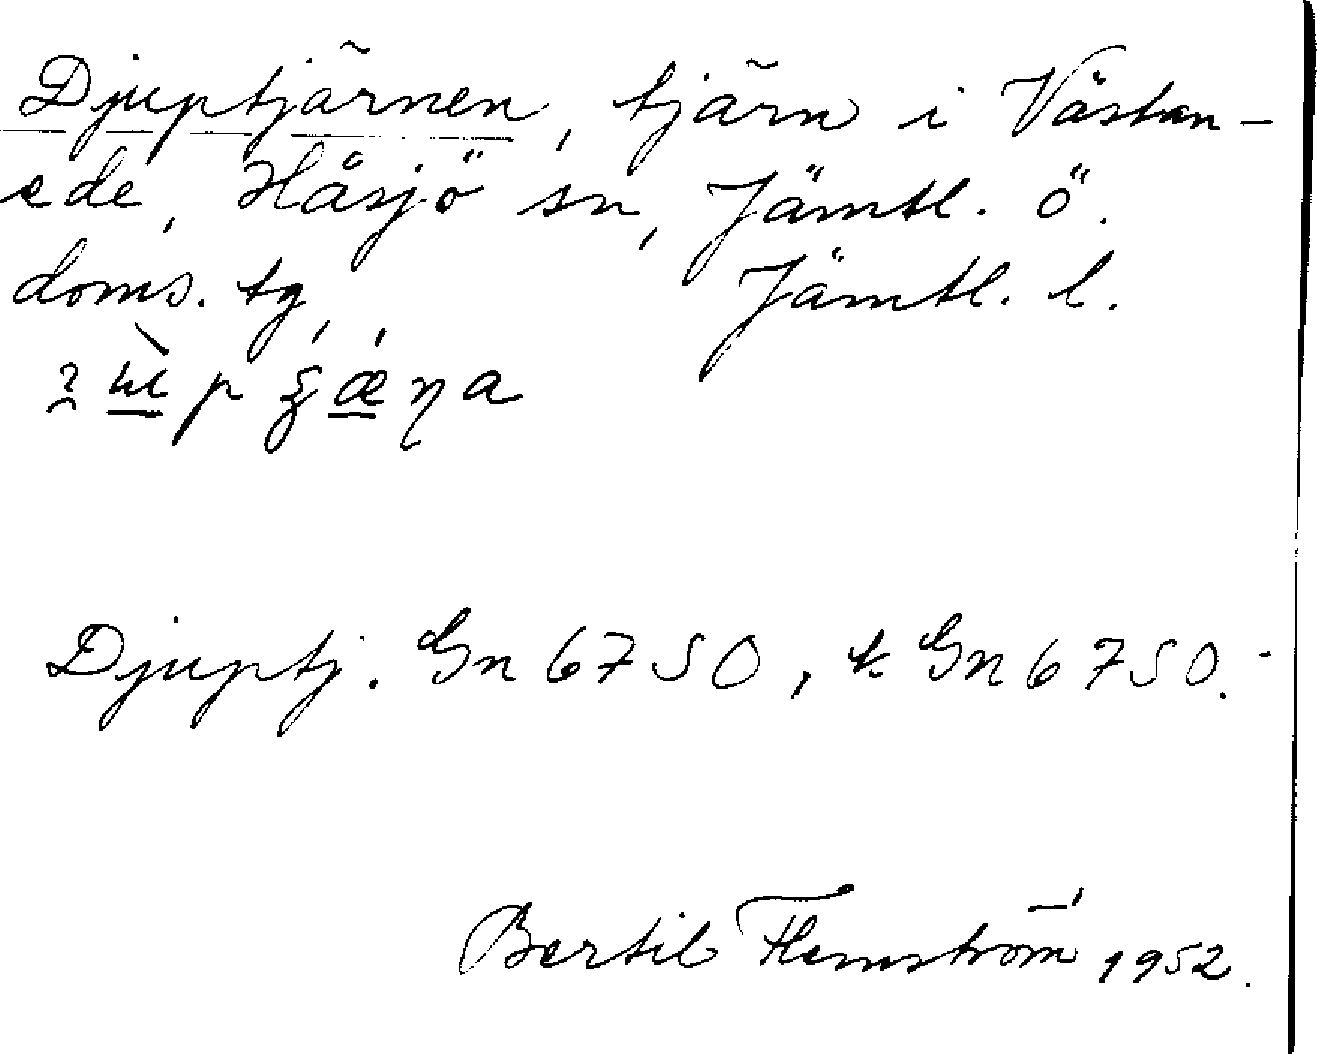 Djuptjärnen, tjärn i Västan-
ede, Håsjö sn, Jämtl. ö.
doms. tg, Jämtl. l.
Djuptj. Gn 6750, tr Gn 6750.
Bertil Flemström 1952.